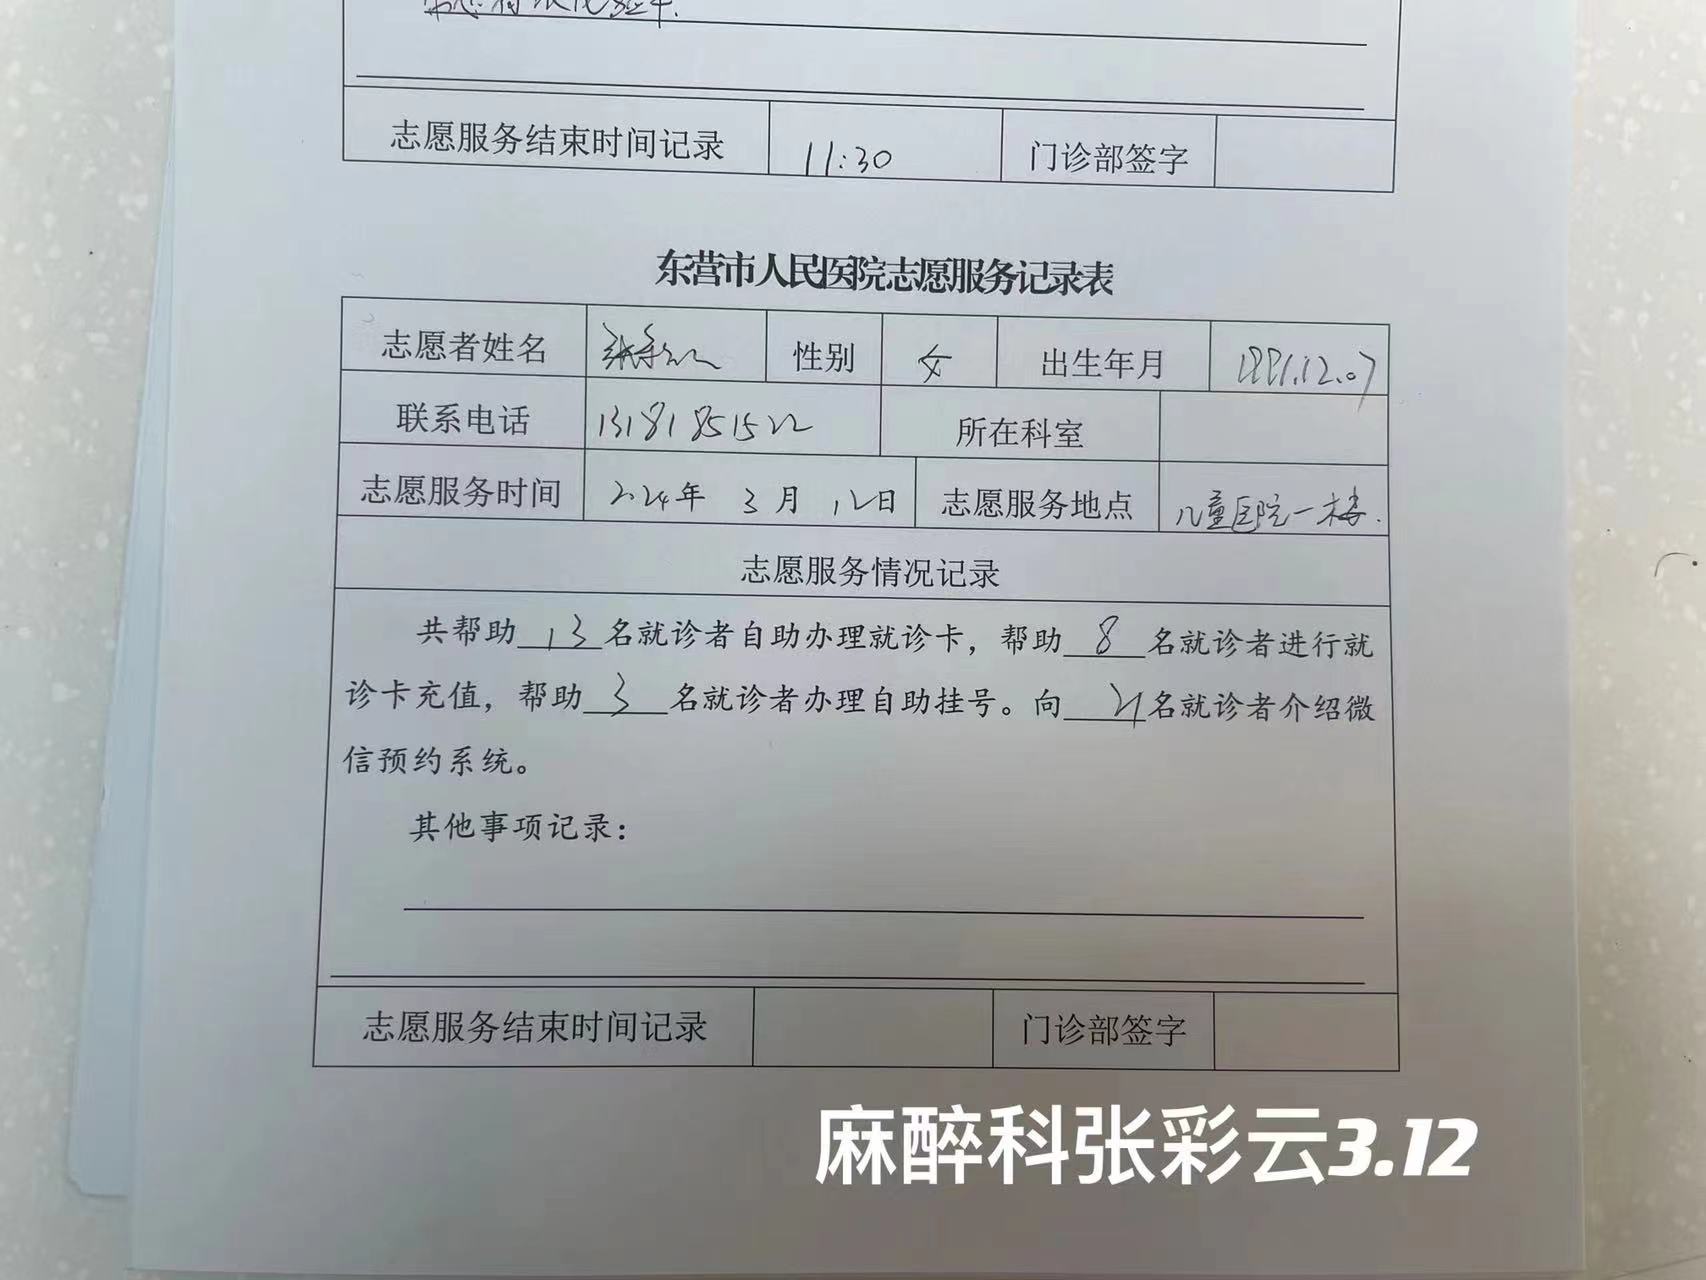 志愿服务结束时间记录 11:30 门诊部签字
东营市人民医院志愿服务记录表
志愿者姓名 张彩云 性别 女 出生年月 1991.12.07
联系电话 13181851522 所在科室
志愿服务时间 2024年 3月 12日 志愿服务地点 儿童医院一楼.
志愿服务情况记录
共帮助13名就诊者自助办理就诊卡，帮助8名就诊者进行就
诊卡充值，帮助3名就诊者办理自助挂号。向21名就诊者介绍微
信预约系统。
其他事项记录：
志愿服务结束时间记录 门诊部签字
麻醉科张彩云3.12